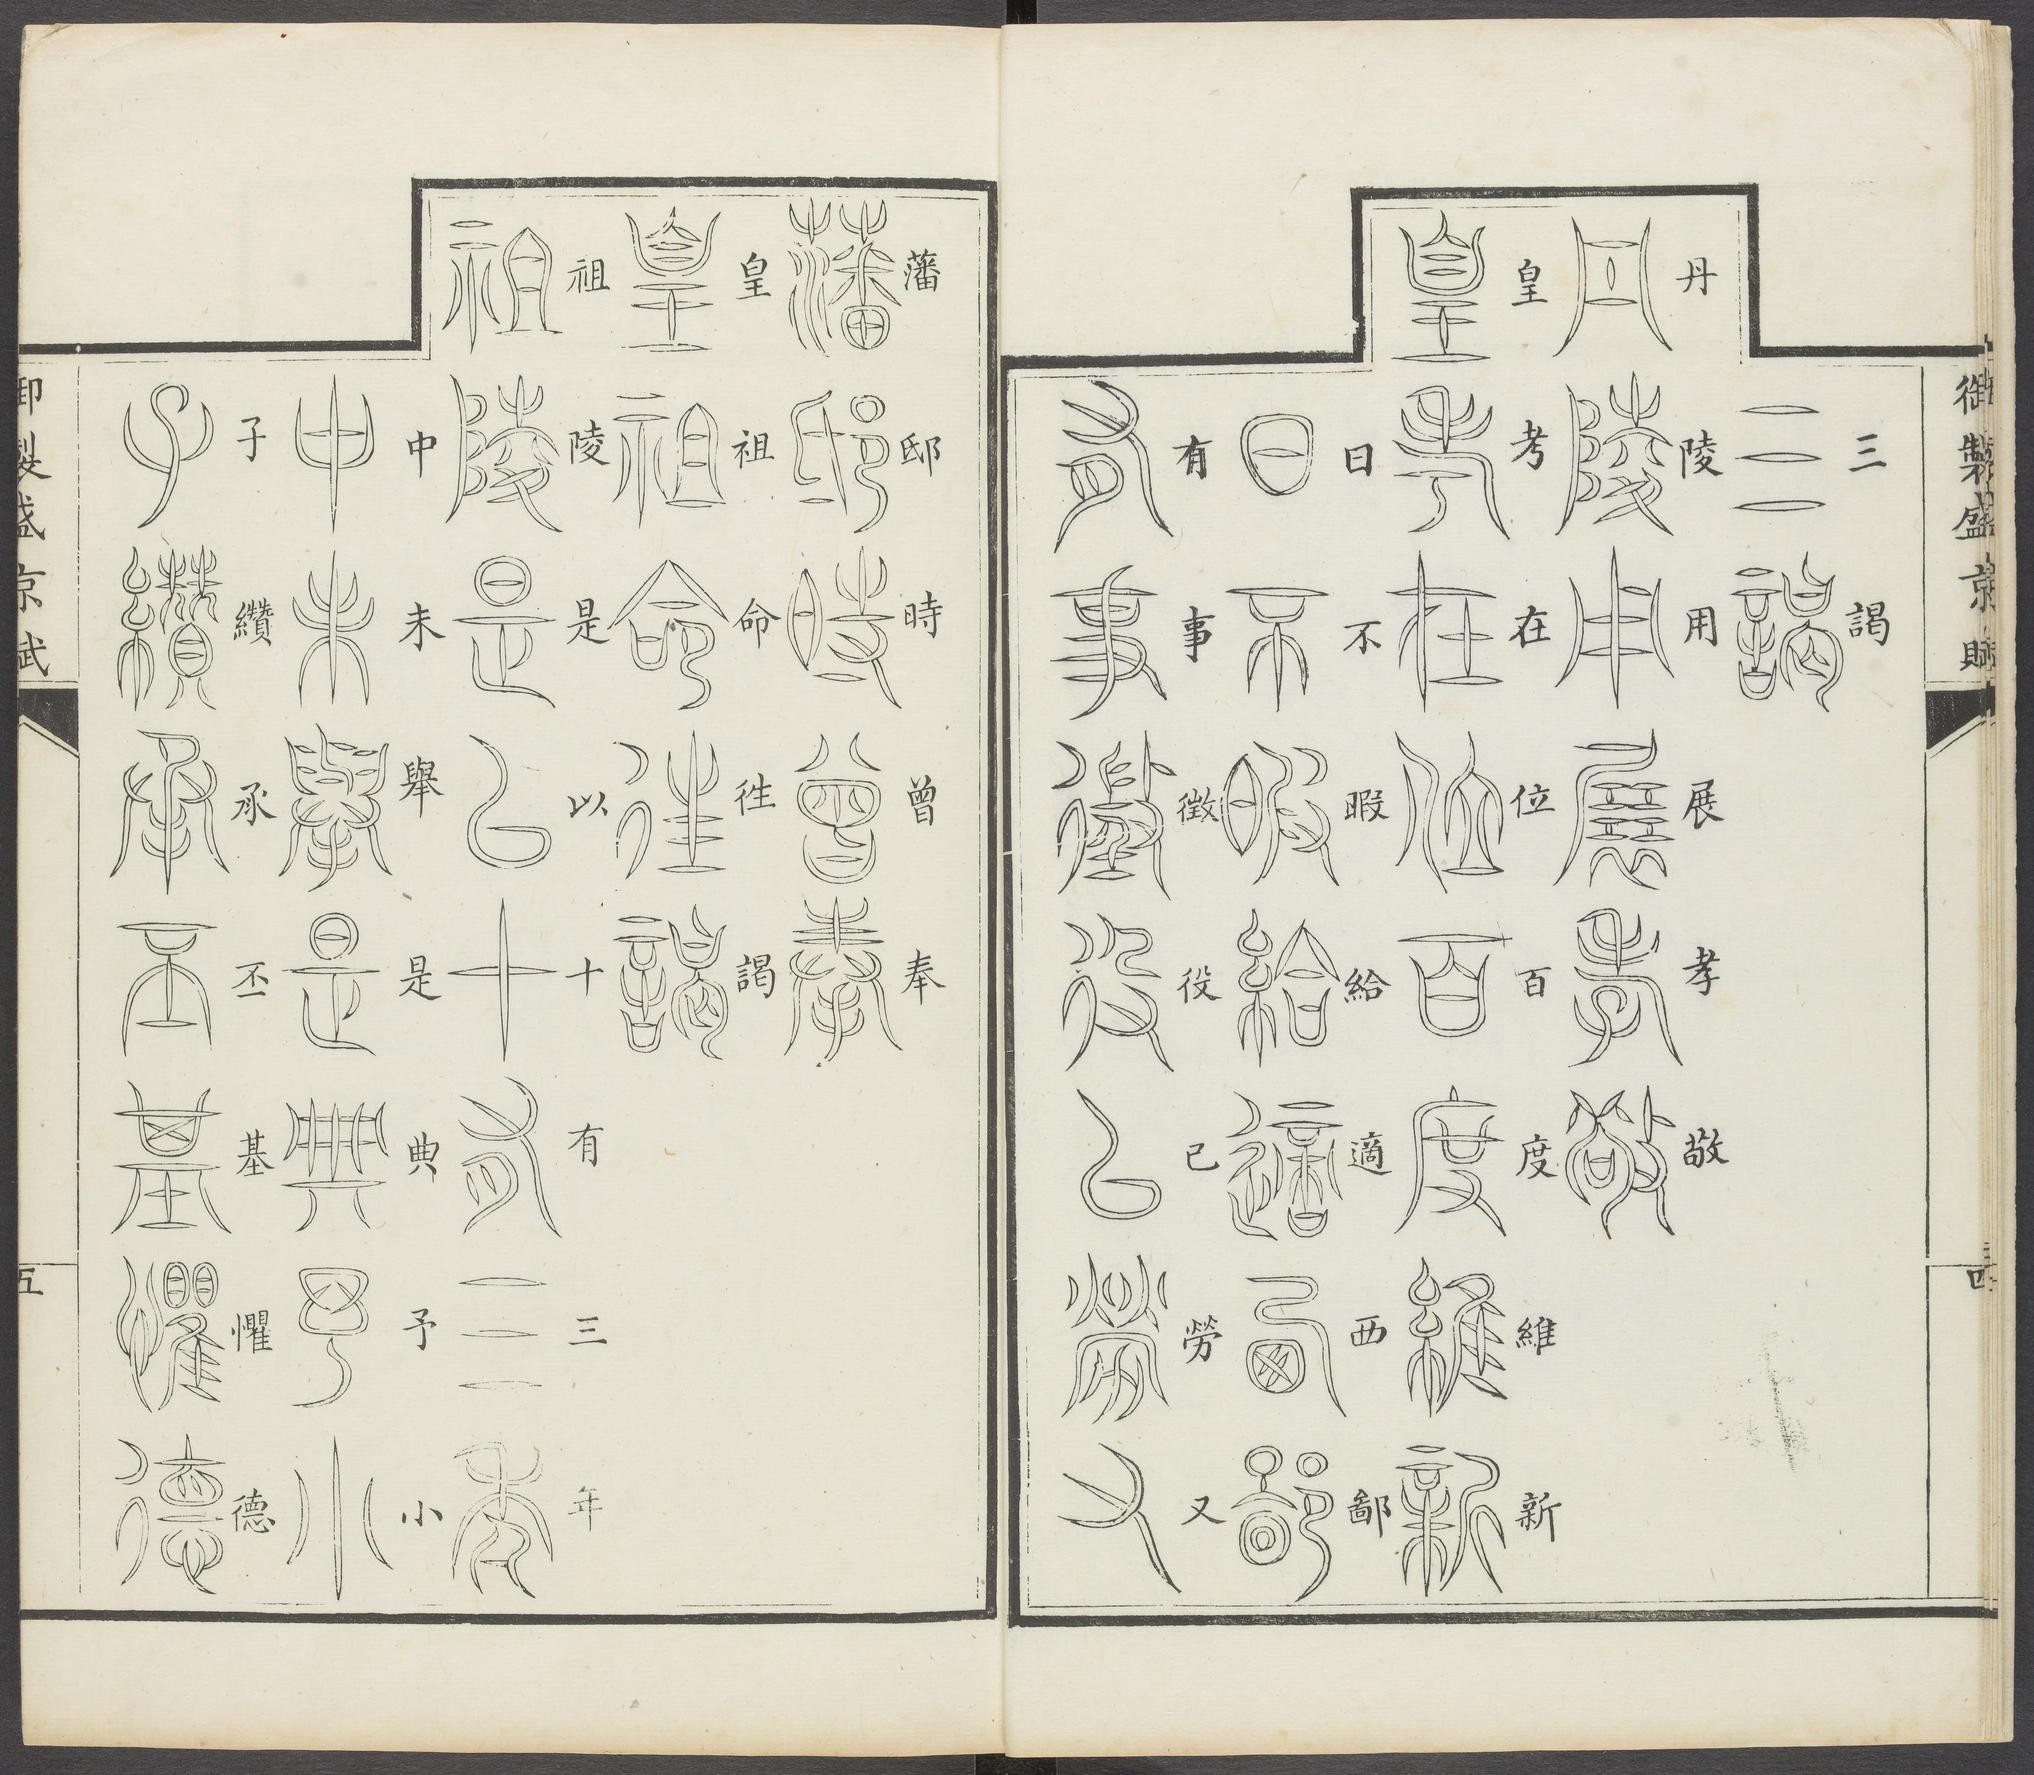 御製盛京賦
四
三謁
丹陵用展孝敬
皇考在位百度維新
日不暇給適西鄙
有事徵役已勞又
藩邸時曾奉
皇祖命徃謁
祖陵是以十有三年
中未舉是典予小
子纘承丕基懼德
御製盛京賦
五